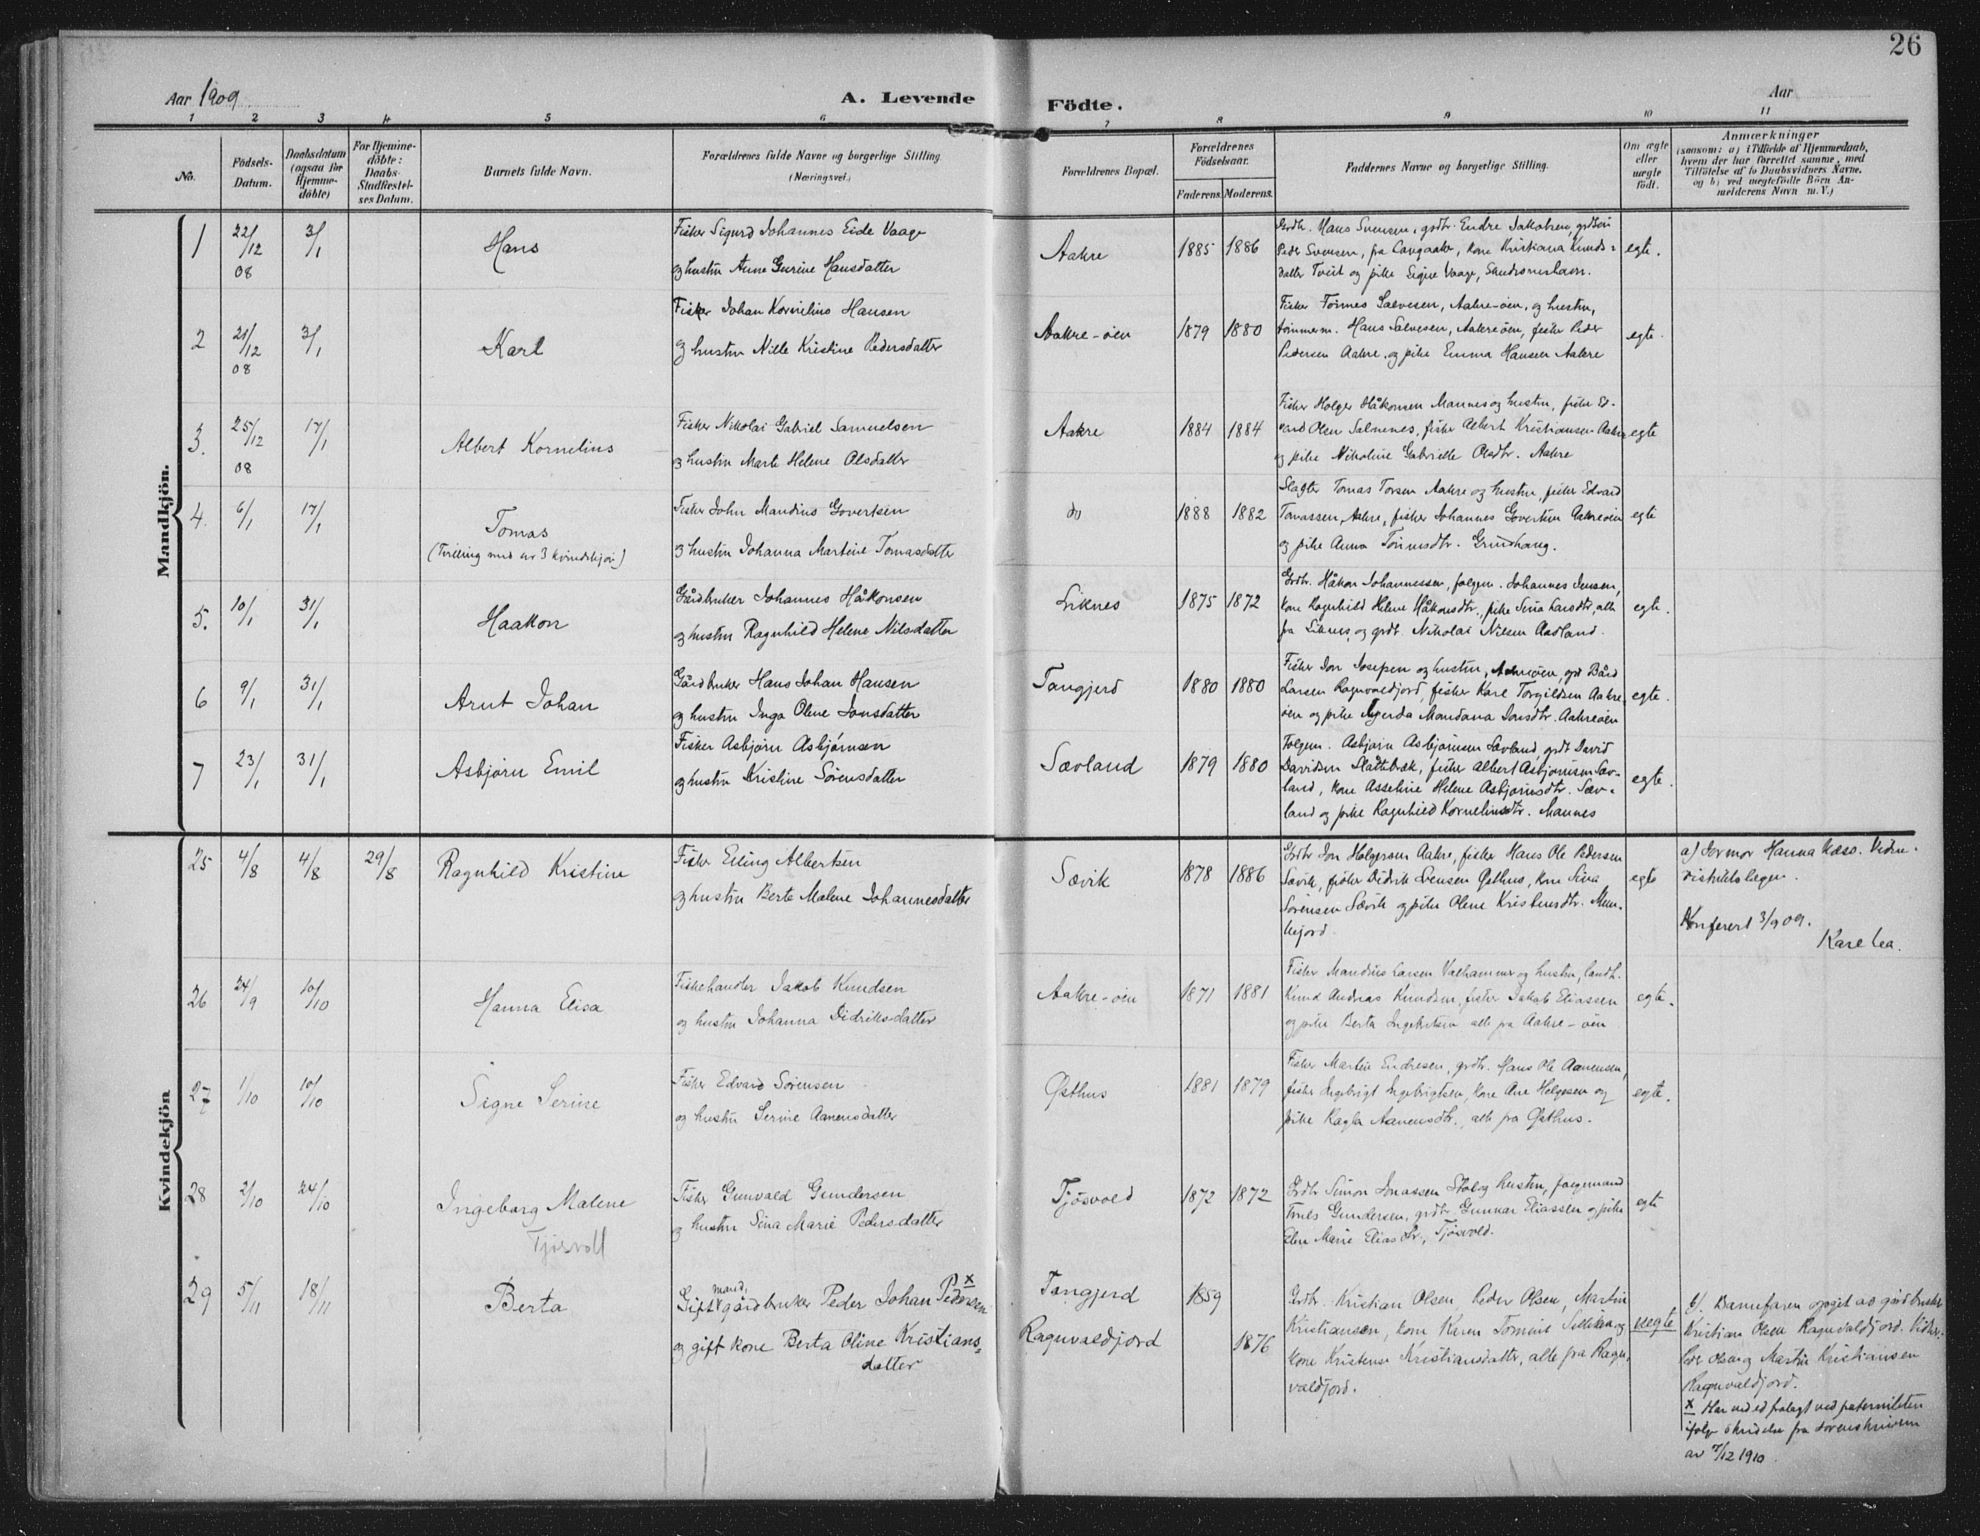 26
Aar 1909
A. Levende
Födte.
Aar
1 2 3 4 5 6 7 8 9 10 11
No.
Födsels-
Datum.
Daabsdatum
(ogsaa for
Hjemme-
döbte)
For Hjemme-
döbte:
Daabs-
Stadfæstel-
ses Datum.
Barnets fulde Navn.
Forældrenes fulde Navne og borgerlige Stilling
(Næringsvei.)
Forældrenes Bopæl.
Forældrenes
Födselsaar.
Faderens. Moderens.
Faddernes Navne og borgerlige Stilling.
Om ægte
eller
uægte
födt.
Anmærkninger
(saasom: a) i Tilfælde af Hjemmedaab,
hvem der har forrettet samme, med
Tilföielse af to Daabsvidners Navne.
og b) ved uægtefödte Börn An-
melderens Navn m. V.)
Mandkjön.
1
22/12 08
3/1
Hans
Fisker Sigurd Johannes Eide Vaage
og hustru Anne Gurine Hansdatter
Aakre
1885 1886
Grdbr. Hans Svensen, grdbr. Endre Jakobsen, grdsøn
Peder Svensen, fra Langaaker, kone Kristiana Knuds-
datter Tveit og pike Signe Vaage, Skudesneshavn.
egte.
2
21/12 08
3/1
Karl
Fisker Johan Kornelius Hansen
og hustru Nille Kristine Pedersdatter
Aakre-øen
1879 1880
Fisker Tønnes Salvesen, Aakre-øen, og hustru,
tømmerm. Hans Salvesen, Aakreøen, fisker Peder
Pedersen Aakre, og pike Emma Hansen Aakre
egte.
3.
25/12 08
17/1
Albert Kornelius
Fisker Nikolai Gabriel Samuelsen
og hustru Marte Helene Olsdatter
Aakre
1884 1884
Fisker Holger Håkonsen Mannes og hustru, fisker Ed-
vard Olsen Salnenes, fisker Albert Kristiansen Aakre
og pike Nikoline Gabrielle Olsdtr. Aakre
egte
4.
6/1
17/1
Tomas
(Tvilling med nr 3 kvindekjøn)
Fisker John Mandius Govertsen
og hustru Johanna Martine Tomasdatter
do
1888 1882
Slagter Tomas Torsen Aakre og hustru, fisker Edvard
Tomassen, Aakre, fisker Johannes Govertsen Aakreøen
og pike Anna Tønnesdtr. Grindhaug.
egte
5.
10/1
31/1
Haakon
Gårdbruker Johannes Håkonsen
og hustru Ragnhild Helene Nilsdatter
Liknes
1875 1872
Grdbr. Håkon Johannessen, folgem. Johannes Jensen,
kone Ragnhild Helene Håkonsdtr., pike Sina Larsdtr, alle
fra Liknes, og grdbr. Nikolai Nilsen Aadland.
egte.
6
9/1
31/1
Arnt Johan
Gårdbruker Hans Johan Hansen
og hustru Inga Oline Jonsdatter
Tangjerd
1880 1880
Fisker Jon Josepsen og hustru, Aakreøen, grd Bård
Larsen Ragnvaldjord, fisker Karl Torgildsen Aakre-
øen og pike Agerda Mandana Jonsdtr. Aakreøen
egte.
7
23/1
31/1
Asbjørn Emil
Fisker Asbjørn Asbjørnsen
og hustru Kristine Sørensdatter
Sævland
1879 1880
Folgem. Asbjørn Asbjørnsen Sævland, grdbr David
Davidsen Slåttebræk, fisker Albert Asbjørnsen Sæv-
land, kone Asseline Helene Asbjørnsdtr. Sæv-
land og pike Ragnhild Korneliusdtr. Mannes
egte.
Kvindekjön
25
4/8
4/8
29/8
Ragnhild Kristine
Fisker Elling Albertsen
og hustru Berte Malene Johannesdatter
Sævik
1878 1886
Grdbr Jon Holgersen Aakre, fisker Hans Ole Pedersen
Sævik, fisker Didrik Svensen Østhus, kone Sina
Sørensen Sævik og pike Olene Kristensdtr. Mun-
kejord
egte
a) Jormor Hanna Næso. Vidne:
distriktslægen.
Konferert 3/9 09.
Kare Lea.
26
24/9
10/10
Hanna Elisa
Fiskehandler Jakob Knudsen
og hustru Johanna Didriksdatter
Aakre-øen
1871 1881
Fisker Mandius Larsen Valhammer og hustru, landh.
Knud Andreas Knudsen, fisker Jakob Eliassen
og pike Berta Ingebretsen alle fra Aakre-øen
egte.
27
1/10
10/10
Signe Serine
Fisker Edvard Sørensen
og hustru Serine Aanensdatter
Østhus
1881 1879
Fisker Martin Endresen, grdbr. Hans Ole Aanensen,
fisker Ingebrigt Ingebrigtsen, kone Ane Helgesen og
pike Ragla Aanensdtr., alle fra Østhus.
egte.
28
2/10
24/10
Ingeborg Malene
Tjøsvoll
Fisker Gunvald Gundersen
og hustru Sina Marie Pedersdatter
Tjøsvold
1872 1872
Grdbr Simon Jonassen Stol og hustru, folgemand
Tønes Gundersen, grdbr Gunnar Eliassen og pike
Elen Marie Eliasdtr., Tjøsvold.
egte
29
5/11
18/11
Berta
Gift mand, gårdbruker Peder Johan Pedersen x
og gift kone Berta Oline Kristians-
datter
Tangjerd
Ragnvaldjord
1859
1876
Grdbr. Kristian Olsen, Peder Olsen, Martin
Kristiansen, kone Karen Tomine Sillesen og
kone Kristense Kristiansdatter, alle fra Ragn-
valdjord.
uegte
b). Barnefaren opgit av gårdbruker
Kristian Olsen Ragnvaldjord. Vidner:
Peder Olsen og Martin Kristiansen
Ragnvaldjord.
x Har vedved fralagt ved paterniteten
ifølge skrivelse fra sorenskriveren
av 7/12 1910.